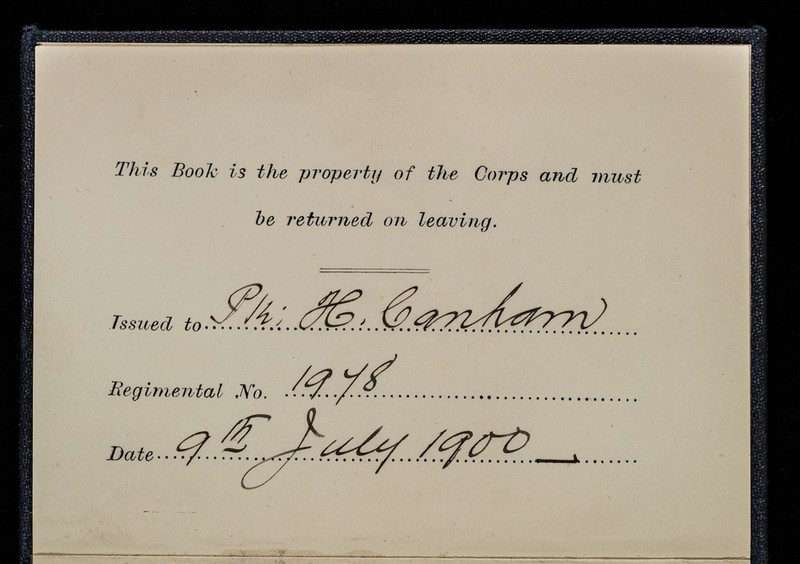 This Book is the property of the Corps and must
be returned on leaving.
Issued to H. Canham
Regimental No. 1978
Date 9th July 1900